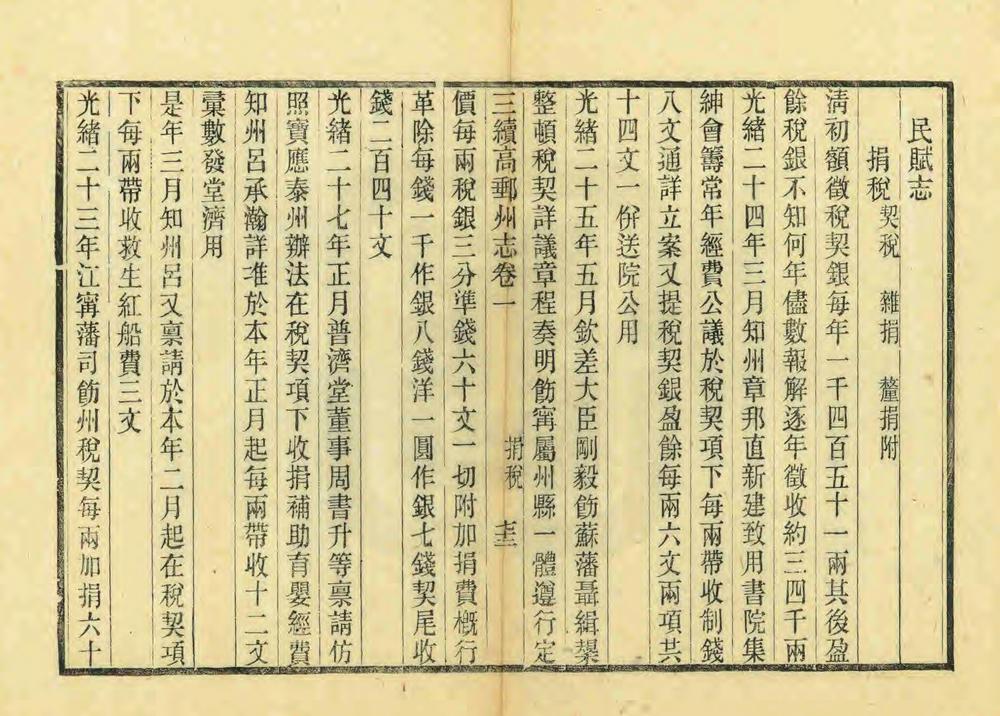 民賦志
捐稅 契稅 雜捐 釐捐附
淸初額徵稅契銀每年一千四百五十一兩其後盈
餘稅銀不知何年儘數報解逐年徵收約三四千兩
光緒二十四年三月知州章邦直新建致用書院集
紳會籌常年經費公議於稅契項下每兩帶收制錢
八文通詳立案又提稅契銀盈餘每兩六文兩項共
十四文一併送院公用
光緒二十五年五月欽差大臣剛毅飭蘇藩聶緝槼
整頓稅契詳議章程奏明飭寗屬州縣一體遵行定
三續高郵州志卷一 捐稅
價每兩稅銀三分準錢六十文一切附加捐費槪行
革除每錢一千作銀八錢洋一圓作銀七錢契尾收
錢二百四十文
光緒二十七年正月普濟堂董事周書升等禀請仿
照寶應泰州辦法在稅契項下收捐補助育嬰經費
知州呂承瀚詳准於本年正月起每兩帶收十二文
彙數發堂濟用
是年三月知州呂又禀請於本年二月起在稅契項
下每兩帶收救生紅船費三文
光緒二十三年江寗藩司飭州稅契每兩加捐六十